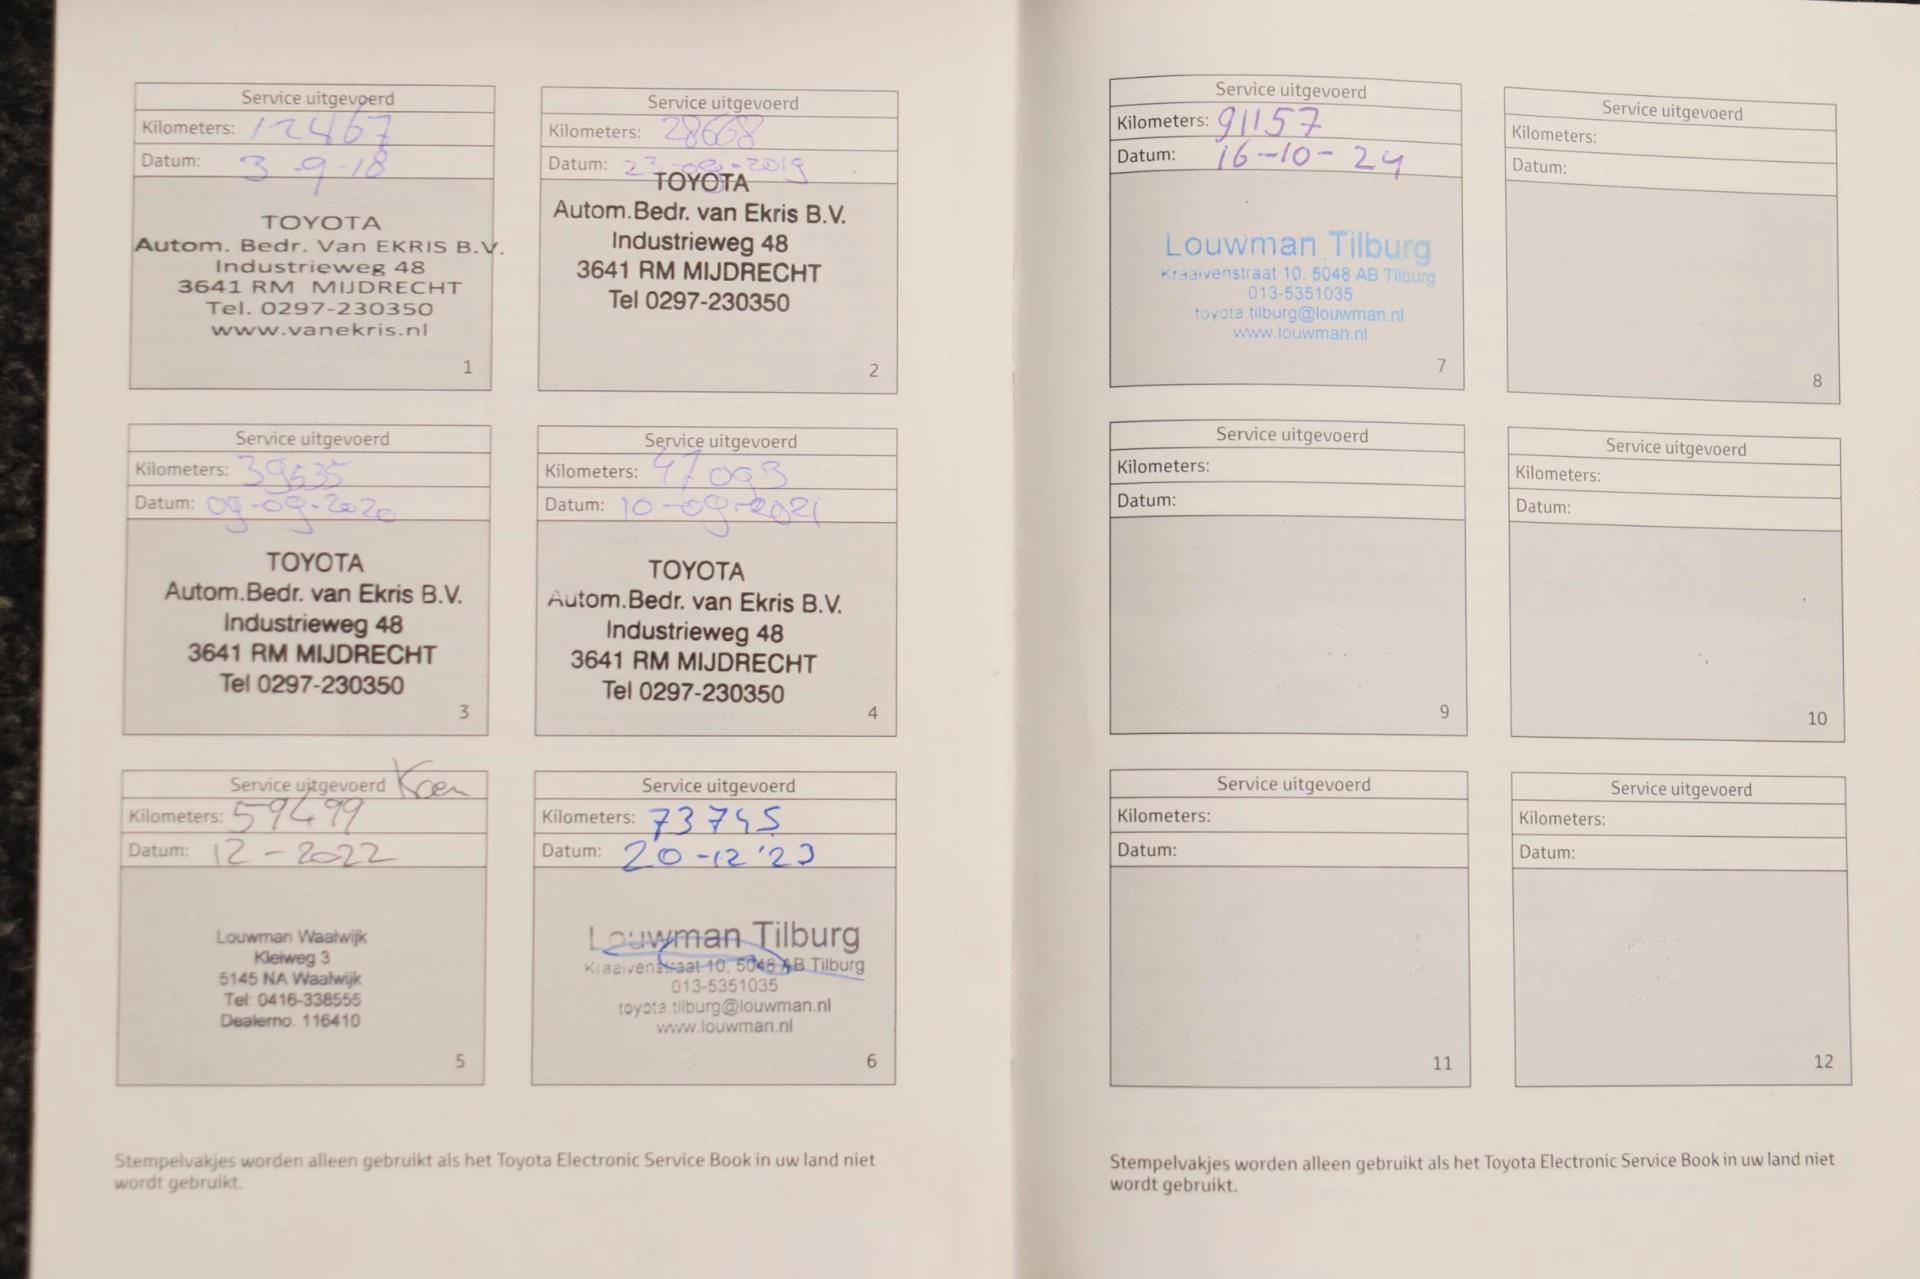 Service uitgevoerd
Kilometers: 12467
Datum: 3-9-18
TOYOTA
Autom. Bedr. Van EKRIS B.V.
Industrieweg 48
3641 RM MIJDRECHT
Tel. 0297-230350
www.vanekris.nl
1
Service uitgevoerd
Kilometers: 28668
Datum: 23-08-2019
TOYOTA
Autom.Bedr. van Ekris B.V.
Industrieweg 48
3641 RM MIJDRECHT
Tel 0297-230350
2
Service uitgevoerd
Kilometers: 39535
Datum: 09-09-2020
TOYOTA
Autom.Bedr. van Ekris B.V.
Industrieweg 48
3641 RM MIJDRECHT
Tel 0297-230350
3
Service uitgevoerd
Kilometers: 47093
Datum: 10-09-2021
TOYOTA
Autom.Bedr. van Ekris B.V.
Industrieweg 48
3641 RM MIJDRECHT
Tel 0297-230350
4
Service uitgevoerd Koen
Kilometers: 59499
Datum: 12-2022
Louwman Waalwijk
Kleiweg 3
5145 NA Waalwijk
Tel: 0416-338555
Dealerno. 116410
5
Service uitgevoerd
Kilometers: 73745
Datum: 20-12'23
Louwman Tilburg
Kraaivenstraat 10, 5048 AB Tilburg
013-5351035
toyota.tilburg@louwman.nl
www.louwman.nl
6
Stempelvakjes worden alleen gebruikt als het Toyota Electronic Service Book in uw land niet
wordt gebruikt.
Service uitgevoerd
Kilometers: 91157
Datum: 16-10-24
Louwman Tilburg
Kraaivenstraat 10, 5048 AB Tilburg
013-5351035
toyota.tilburg@louwman.nl
www.louwman.nl
7
Service uitgevoerd
Kilometers:
Datum:
8
Service uitgevoerd
Kilometers:
Datum:
9
Service uitgevoerd
Kilometers:
Datum:
10
Service uitgevoerd
Kilometers:
Datum:
11
Service uitgevoerd
Kilometers:
Datum:
12
Stempelvakjes worden alleen gebruikt als het Toyota Electronic Service Book in uw land niet
wordt gebruikt.